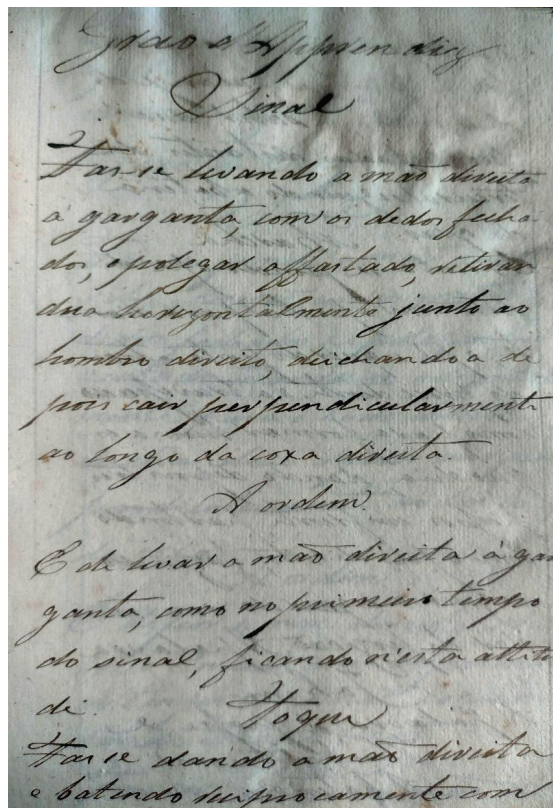 Grao d'Apprendiz
Sinal
Faz-se levando a mão direita
á garganta, com os dedos fecha
dos, e polegar affastado, retiran
dua horizontalmente junto ao
hombro direito, deichando a de
pois cair perpendicularmente
ao longo da coxa direita.
A ordem.
É de levar a mão direita à gar
ganta, como no primeiro tempo
do sinal, ficando n'esta attitu
de. Toque
Faz-se dando a mão direita
e batendo reciprocamente com